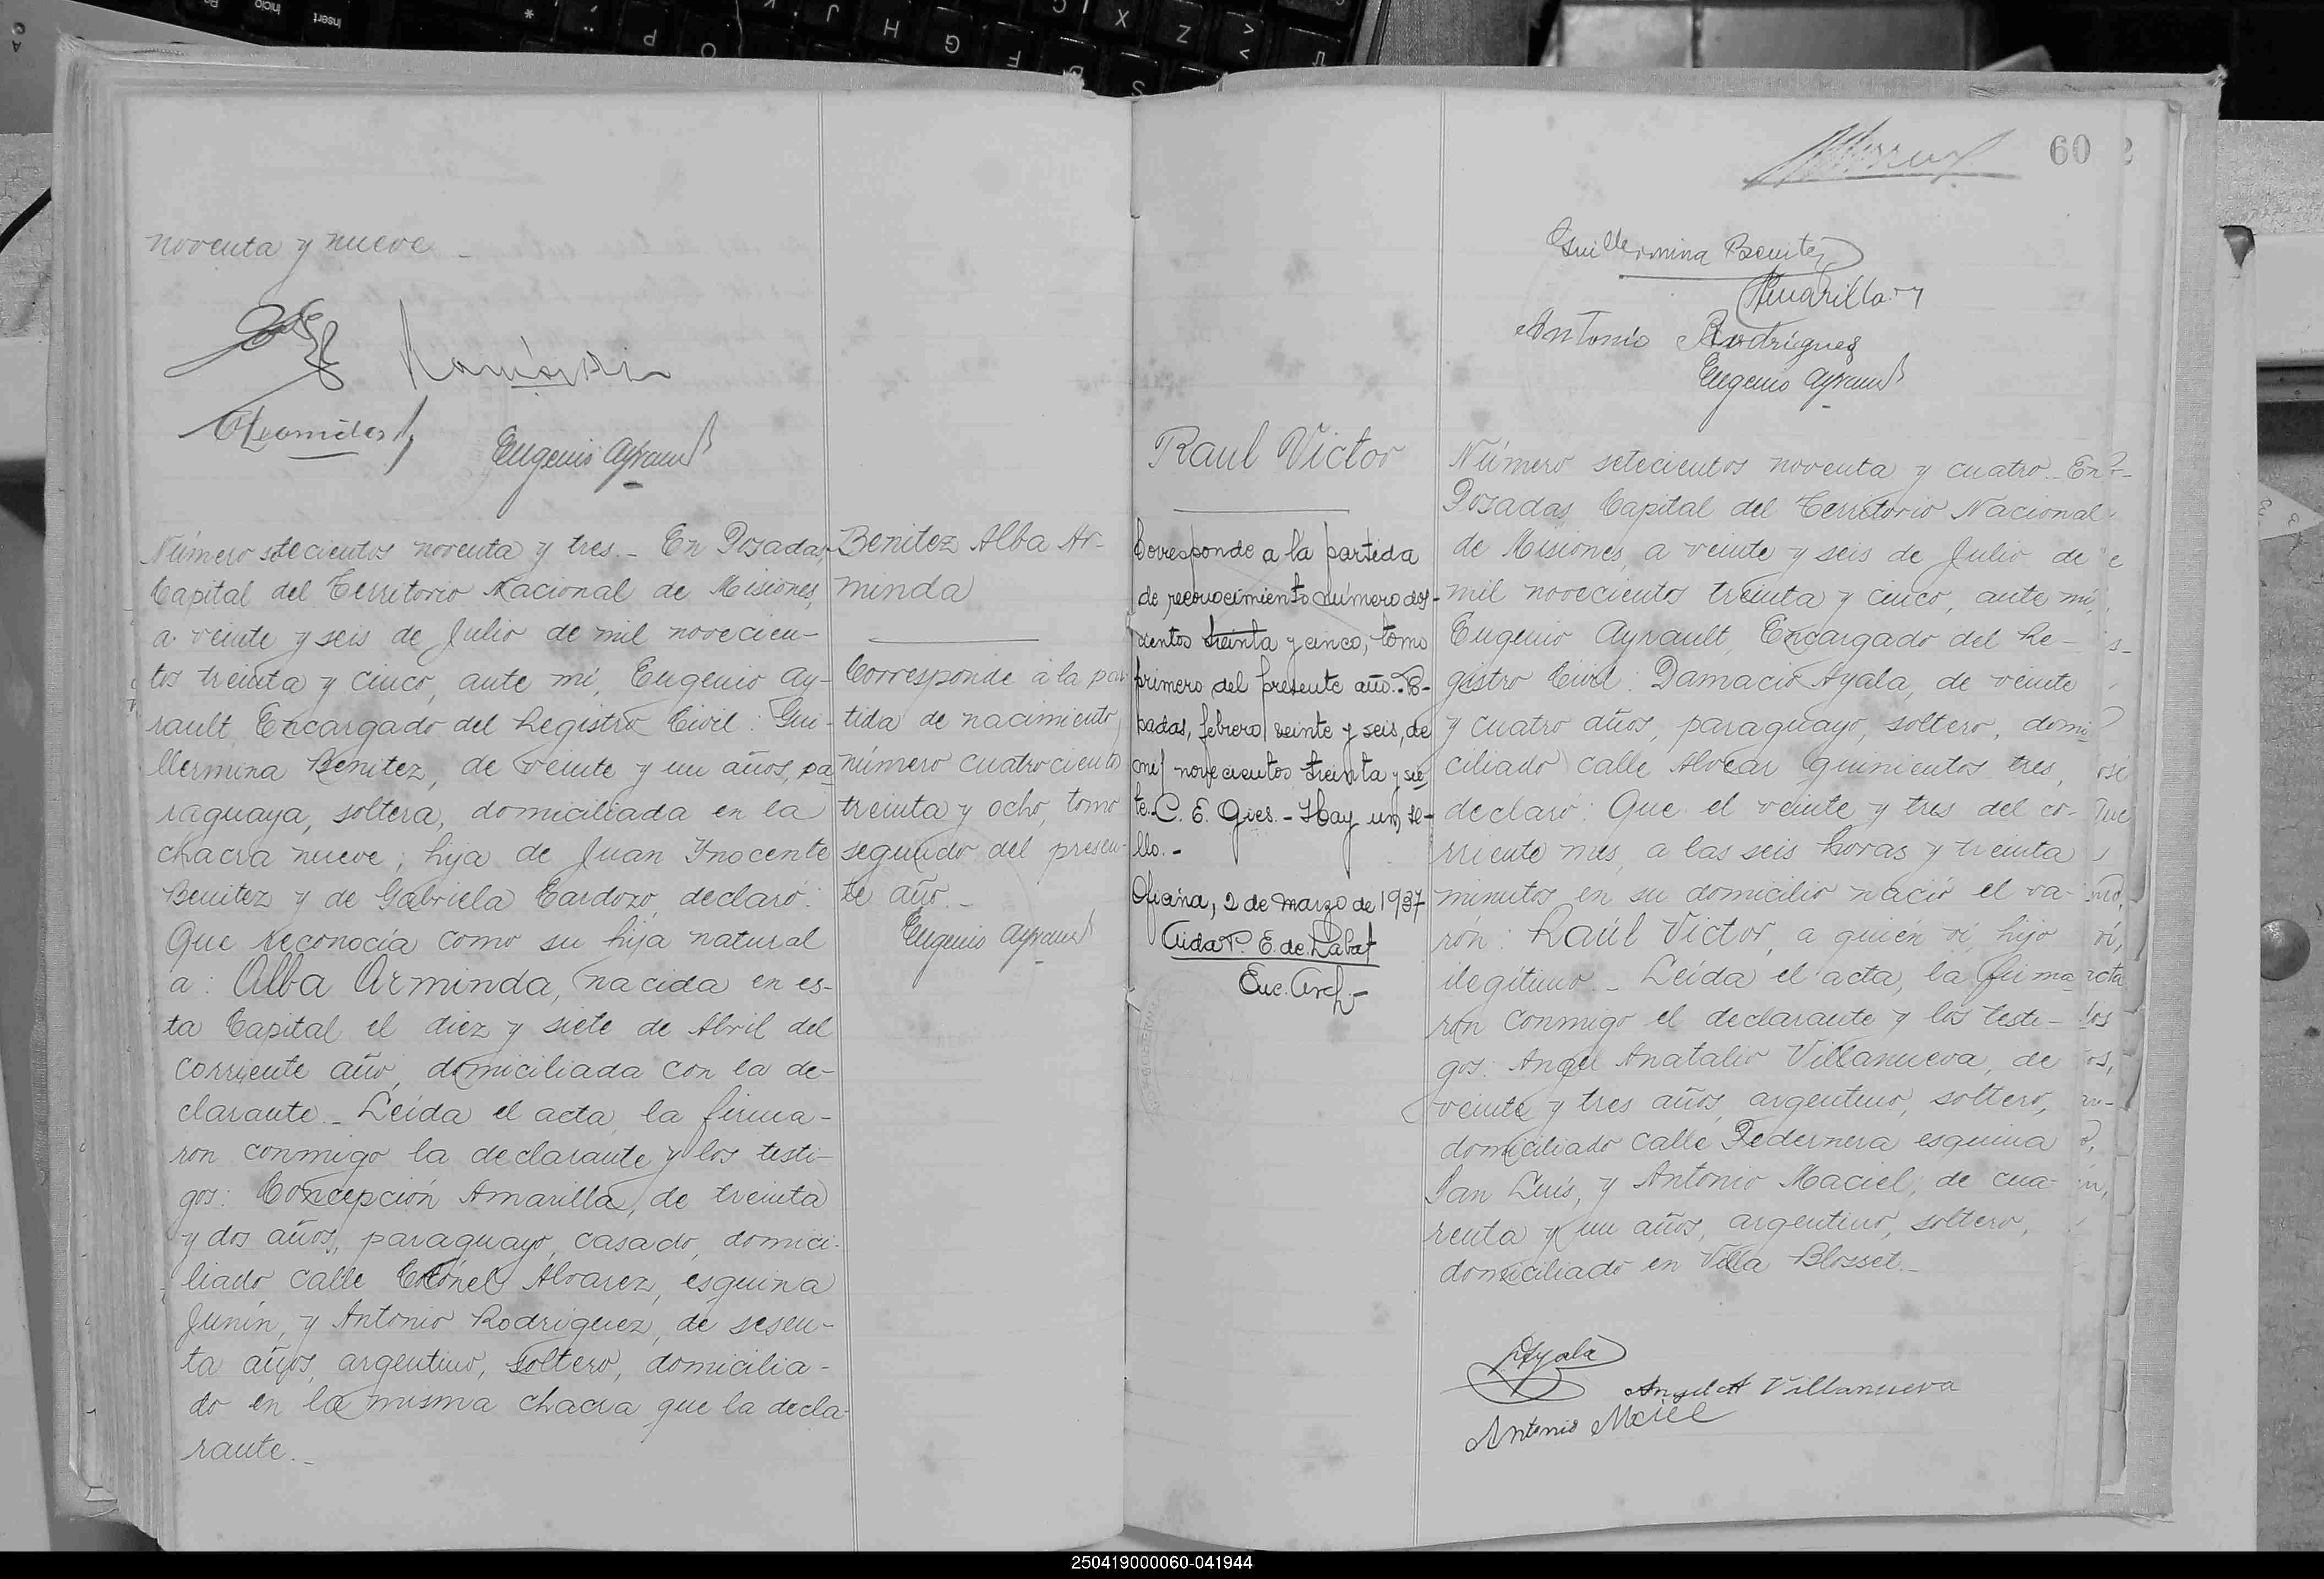 noventa y nueve
Eugenio Ayrault
Número setecientos noventa y tres.- En Posadas,
Capital del Territorio Nacional de Misiones,
a veinte y seis de Julio de mil novecien-
tos treinta y cinco, ante mí, Eugenio Ay-
rault, Encargado del Registro Civil: Gui-
llermina Benitez, de veinte y un años, pa-
raguaya, soltera, domiciliada en la
chacra nueve; hija de Juan Inocente
Benitez y de Gabriela Cardozo, declaró:
Que reconocía como su hija natural
a: Alba Arminda, nacida en es-
ta Capital el diez y siete de Abril del
corriente año, domiciliada con la de-
clarante.- Leída el acta, la firma-
ron conmigo la declarante y los testi-
gos: Concepción Amarilla, de treinta
y dos años, paraguayo, casado, domici-
liado calle Coronel Alvarez, esquina
Junín, y Antonio Rodriguez, de sesen-
ta años, argentino, soltero, domicilia-
do en la misma chacra que la decla-
rante.-
Benitez Alba Ar-
minda
Corresponde a la par-
tida de nacimiento,
número cuatrocientos
treinta y ocho, tomo
segundo del presen-
te año.-
Eugenio Ayrault
60
Guillermina Benitez
Amarilla
Antonio Rodríguez
Eugenio Ayrault
Raul Victor
Corresponde a la partida
de reconocimiento número dos-
cientos treinta y cinco, tomo
primero del presente año.- Po-
sadas, febrero veinte y seis, de
mil novecientos treinta y sie-
te.- C. E. Gies.- Hay un se-
llo.-
Oficina, 2 de marzo de 1937
Aida P. E. de Labat
Enc. Arch.-
Número setecientos noventa y cuatro.- En
Posadas, Capital del Territorio Nacional
de Misiones, a veinte y seis de Julio de
mil novecientos treinta y cinco, ante mí,
Eugenio Ayrault, Encargado del Re-
gistro Civil: Damacio Ayala, de veinte
y cuatro años, paraguayo, soltero, domi-
ciliado calle Alvear quinientos tres,
declaró: Que el veinte y tres del co-
rriente mes, a las seis horas y treinta
minutos en su domicilio nació el va-
rón: Raúl Victor, a quién ví, hijo
ilegítimo.- Leída el acta, la firma-
ron conmigo el declarante y los testi-
gos: Angel Anatalio Villanueva, de
veinte y tres años, argentino, soltero,
domiciliado calle Pedernera esquina
San Luis, y Antonio Maciel, de cua-
renta y un años, argentino, soltero,
domiciliado en Villa Blosset.-
Ayala
Angel A Villanueva
Antonio Maciel
250419000060-041944